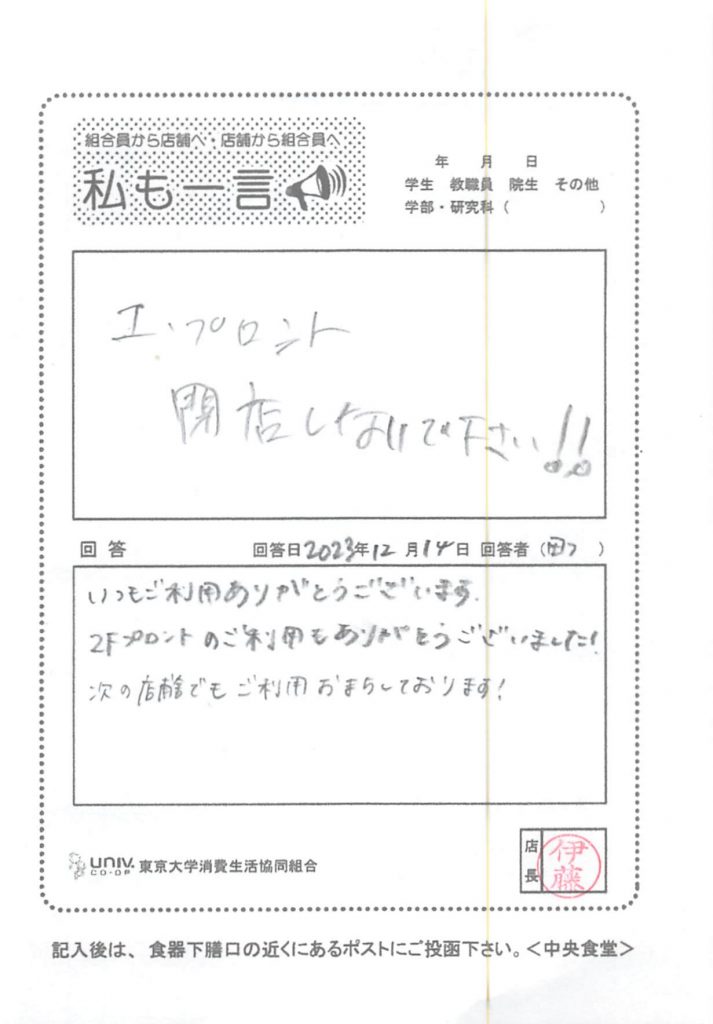 組合員から店舗へ・店舗から組合員へ
私も一言
年 月 日
学生 教職員 院生 その他
学部・研究科（ ）
エ・プロント
閉店しないで下さい!!
回答 回答日2023年12月14日 回答者（ ）
いつもご利用ありがとうございます.
2Fプロントのご利用もありがとうございました!
次の店舗でもご利用おまちしております!
店長
伊藤
UNIV. CO-OP 東京大学消費生活協同組合
記入後は、食器下膳口の近くにあるポストにご投函下さい。＜中央食堂＞